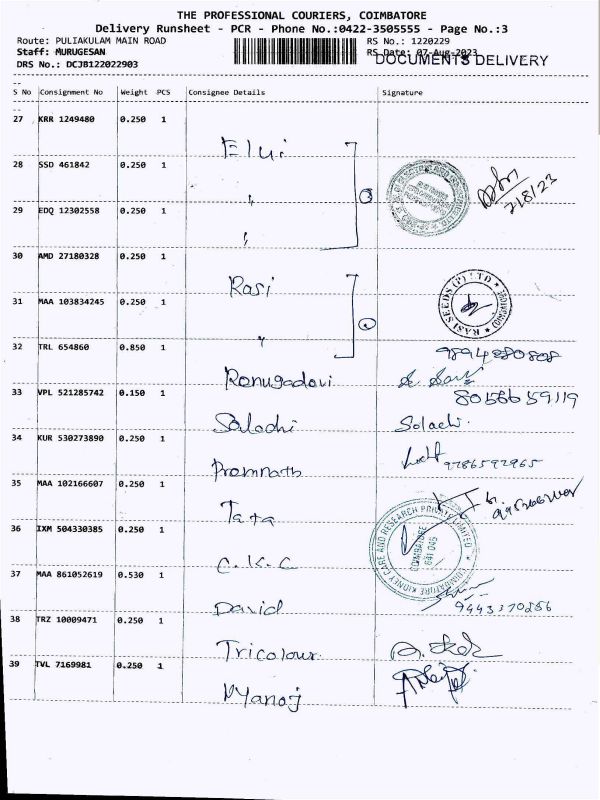 THE PROFESSIONAL COURIERS, COIMBATORE
Delivery Runsheet - PCR - Phone No.:0422-3505555 - Page No.:3
Route: PULIAKULAM MAIN ROAD RS No.: 1220229
Staff: MURUGESAN RS Date: 07-Aug-2023
DRS No.: DCJB122022903 DOCUMENTS DELIVERY
S No Consignment No Weight PCS Consignee Details Signature
27 KRR 1249480 0.250 1
Elui
28 SSD 461842 0.250 1
"
3
7/8/23
29 EDQ 12302558 0.250 1
"
30 AMD 27180328 0.250 1
Rasi
31 MAA 103834245 0.250 1
"
RASI SEEDS (P) LTD
32 TRL 654860 0.850 1
9894880808
Renugadevi
33 VPL 521285742 0.150 1
8056659119
Salachi Solachi.
34 KUR 530273890 0.250 1
Premnath 9786592965
35 MAA 102166607 0.250 1
Tata
36 IXM 504330385 0.250 1
C.K.C
COIMBATORE KIDNEY CARE AND RESEARCH PRIVATE LIMITED
COIMBATORE
641 045
37 MAA 861052619 0.530 1
David 9443370286
38 TRZ 10009471 0.250 1
Tricolour
39 TVL 7169981 0.250 1
Manoj